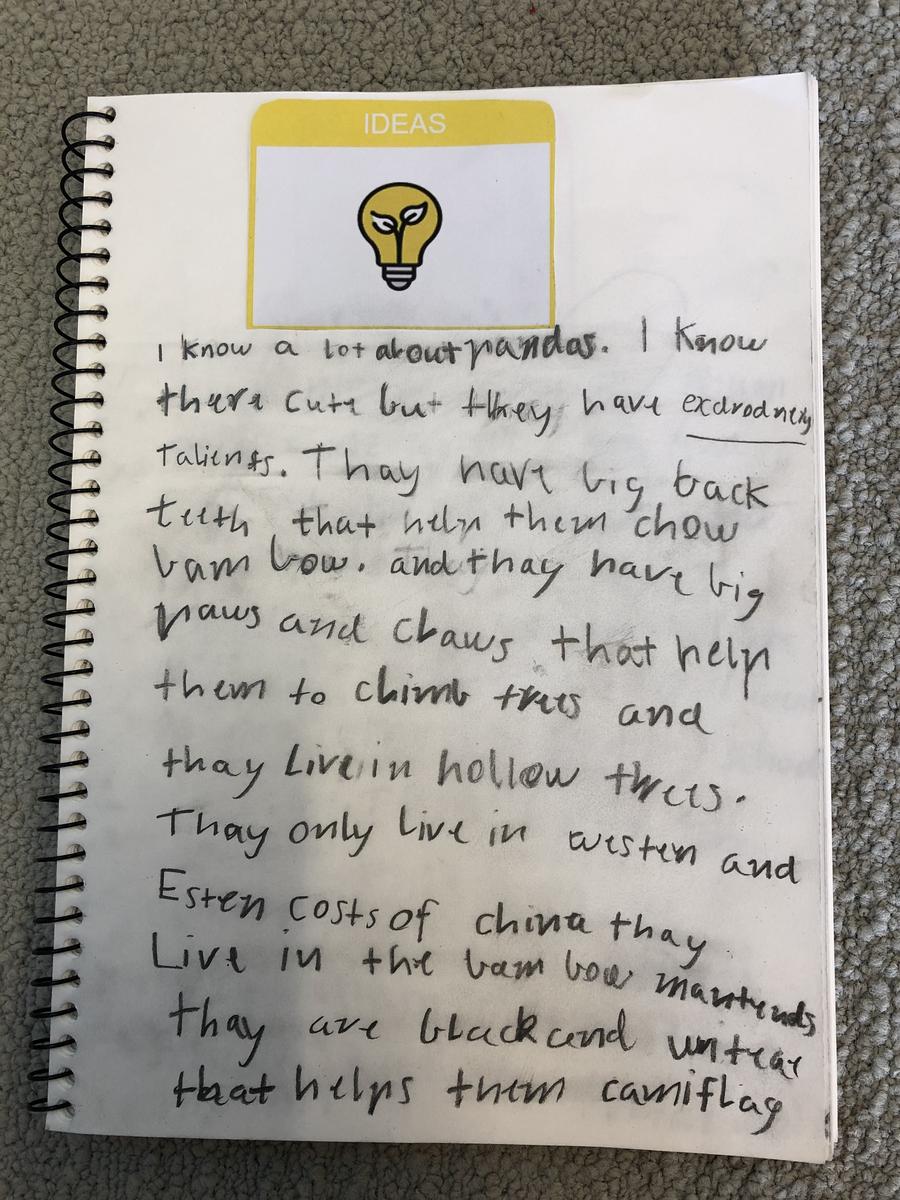 IDEAS
I know a lot about pandas. I know
there cute but they have exdrodnery
talients. Thay have big back
teeth that help them chow
bam bow. and thay have big
paws and claws that help
them to climb trees and
thay Live in hollow threes.
Thay only live in westen and
Esten costs of china thay
Live in the bam bow mantends
thay are black and
that helps them camiflag